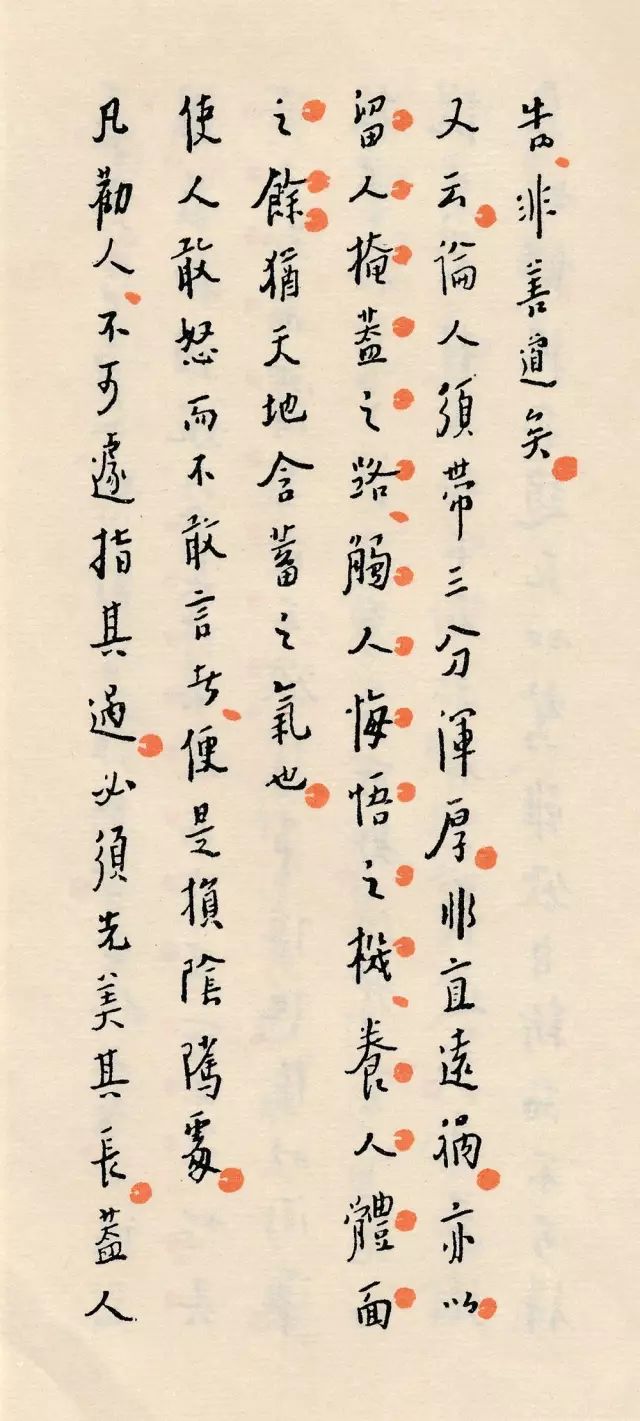 告非善道矣
又云論人須帶三分渾厚非直遠禍亦以
留人掩蓋之路觸人悔悟之機養人體面
之餘猶天地含蓄之氣也
使人敢怒而不敢言者便是損陰騭處
凡勸人不可遽指其過必須先美其長蓋人